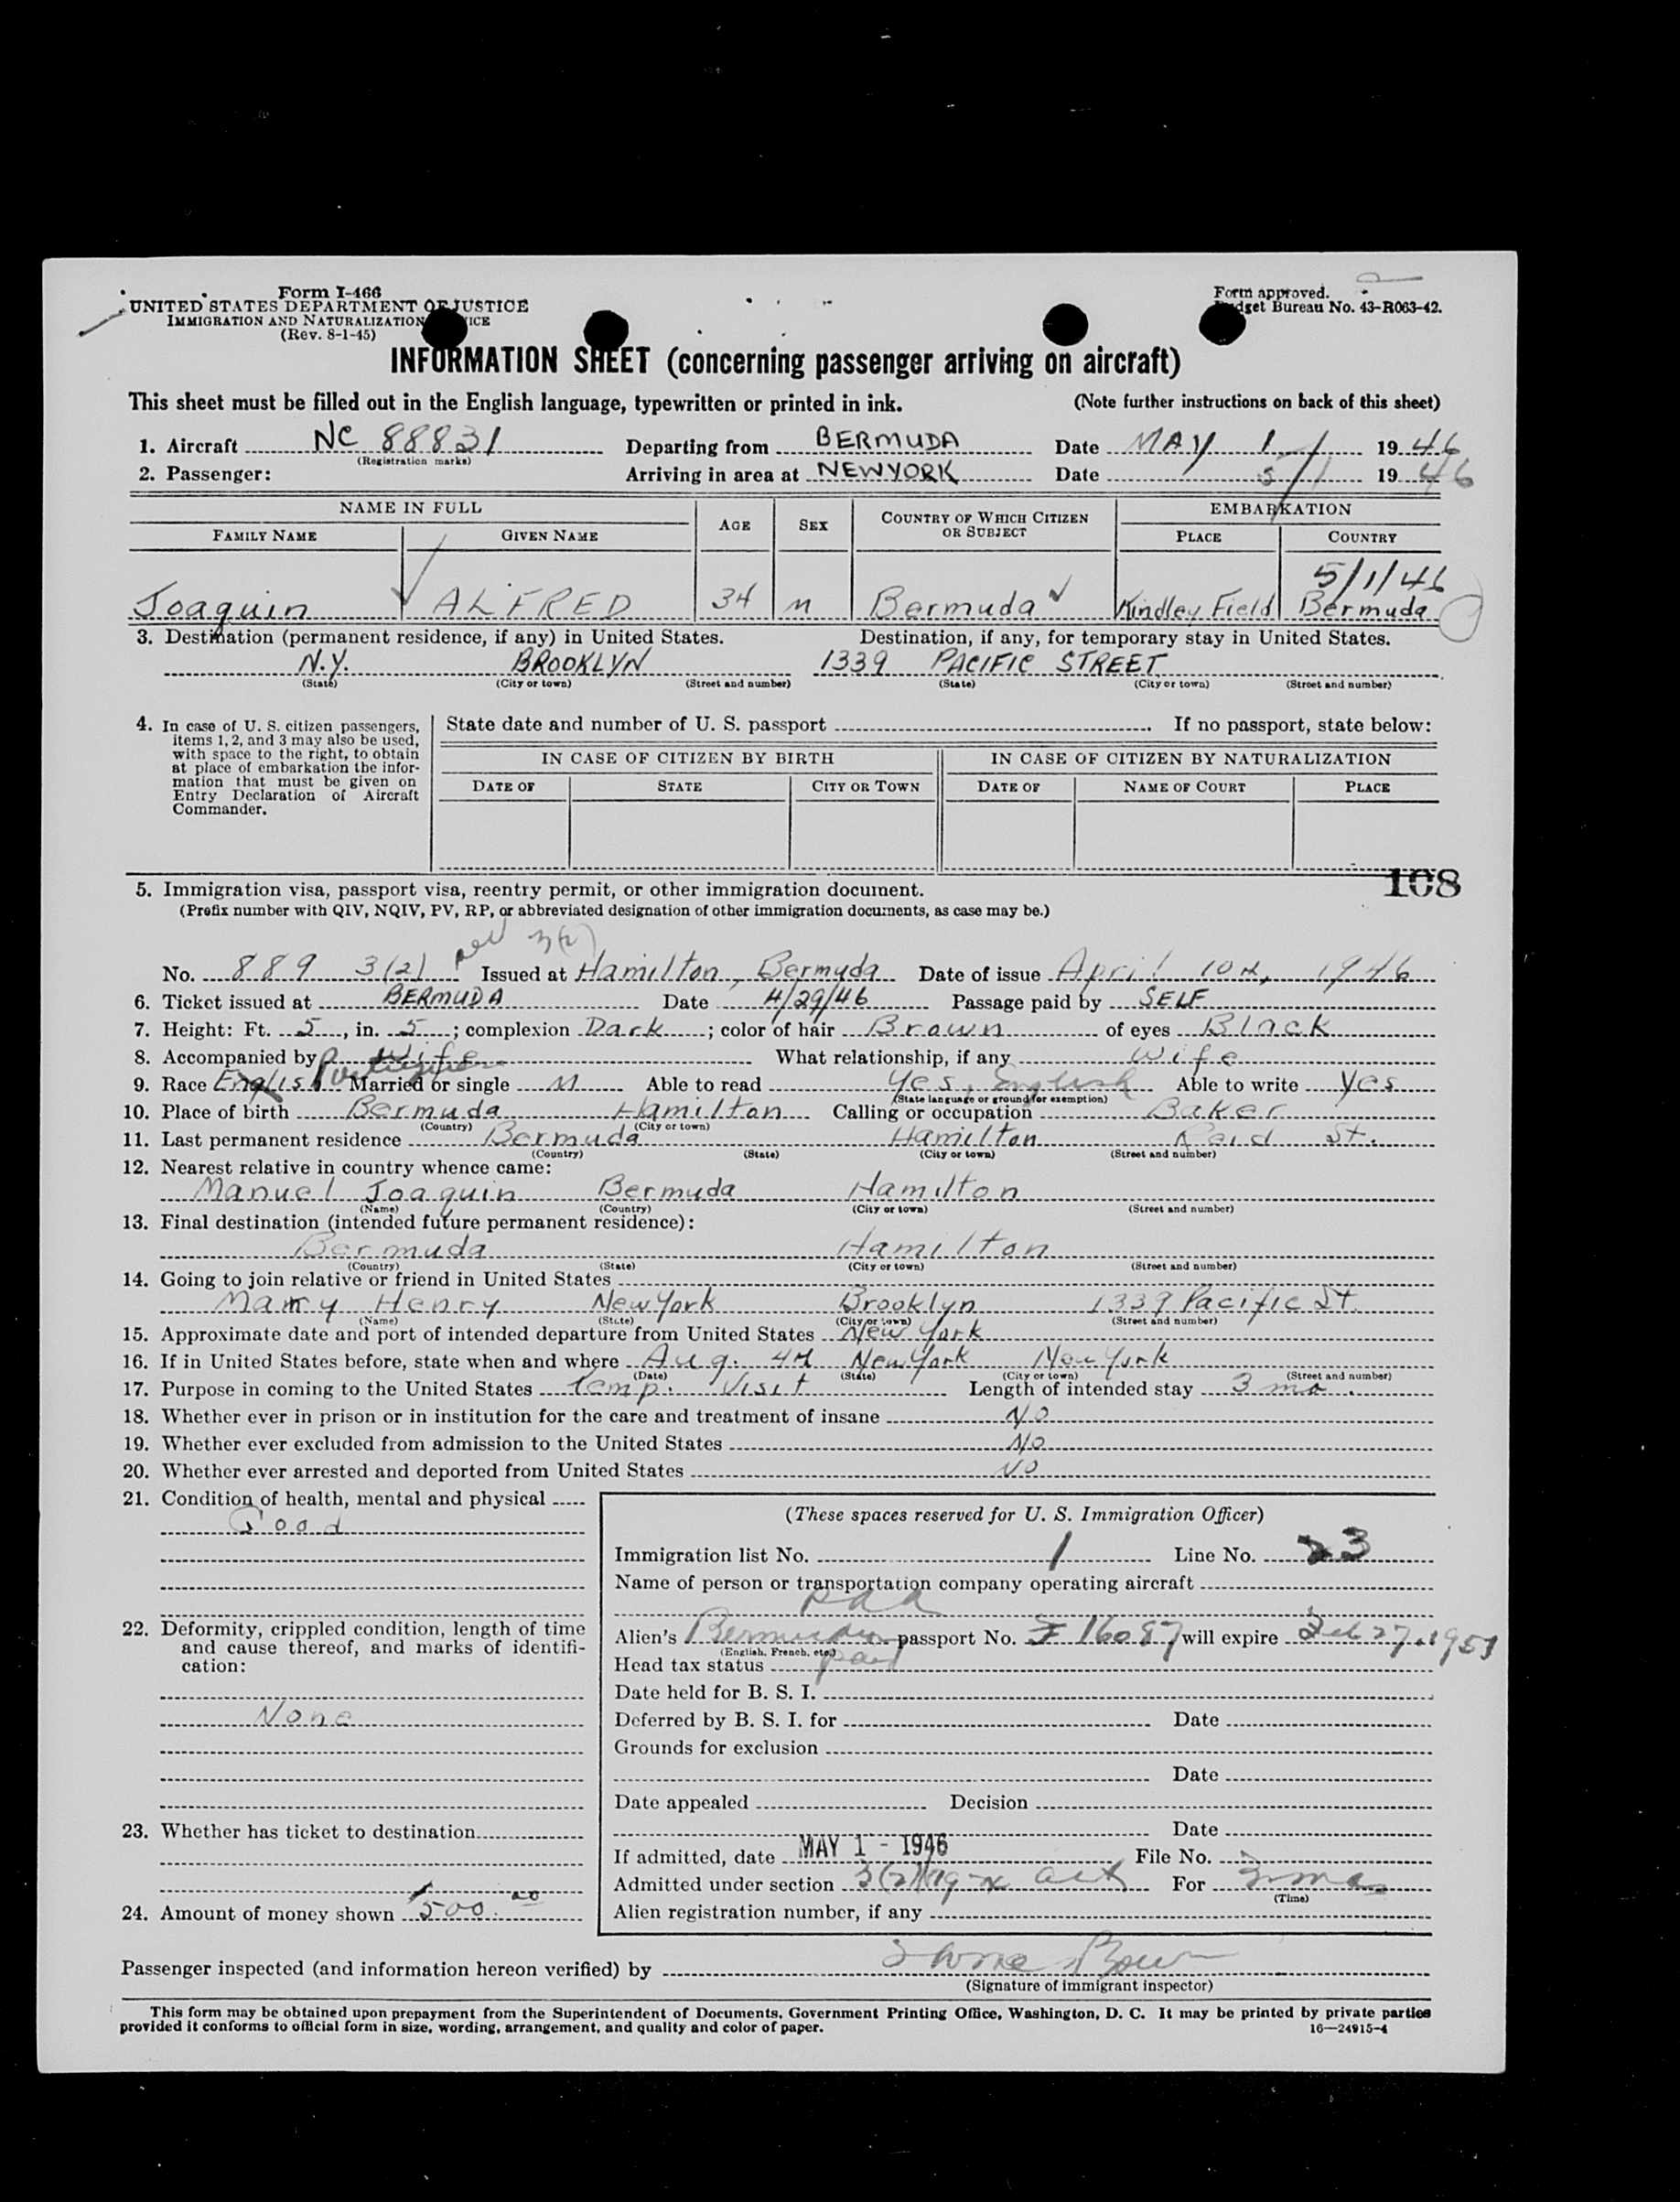 Form I-466
UNITED STATES DEPARTMENT OF JUSTICE
IMMIGRATION AND NATURALIZATION
(Rev. 8-1-45)
Form approved.
Budget Bureau No. 43-R063-42.
INFORMATION SHEET (concerning passenger arriving on aircraft)
This sheet must be filled out in the English language, typewritten or printed in ink. (Note further instructions on back of this sheet)
1. Aircraft NC 88831 Departing from BERMUDA Date MAY 1 1946
(Registration marks)
2. Passenger: Arriving in area at NEWYORK Date 5/1 1946
NAME IN FULL AGE SEX COUNTRY OF WHICH CITIZEN OR SUBJECT EMBARKATION
FAMILY NAME GIVEN NAME PLACE COUNTRY
5/1/46
Joaquin ALFRED 34 M Bermuda Kindley Field Bermuda
3. Destination (permanent residence, if any) in United States. Destination, if any, for temporary stay in United States.
N.Y. BROOKLYN 1339 PACIFIC STREET
(State) (City or town) (Street and number) (State) (City or town) (Street and number)
4. In case of U. S. citizen passengers, items 1, 2, and 3 may also be used, with space to the right, to obtain at place of embarkation the information that must be given on Entry Declaration of Aircraft Commander.
State date and number of U. S. passport If no passport, state below:
IN CASE OF CITIZEN BY BIRTH IN CASE OF CITIZEN BY NATURALIZATION
DATE OF STATE CITY OR TOWN DATE OF NAME OF COURT PLACE
108
5. Immigration visa, passport visa, reentry permit, or other immigration document.
(Prefix number with QIV, NQIV, PV, RP, or abbreviated designation of other immigration documents, as case may be.)
3(2)
No. 889 3(2) Issued at Hamilton, Bermuda Date of issue April 10th, 1946
6. Ticket issued at BERMUDA Date 4/29/46 Passage paid by SELF
7. Height: Ft. 5, in. 5; complexion Dark; color of hair Brown of eyes Black
8. Accompanied by Wife What relationship, if any wife
9. Race English Portuguese Married or single M Able to read Yes, English Able to write Yes
(State language or ground for exemption)
10. Place of birth Bermuda Hamilton Calling or occupation Baker
(Country) (City or town)
11. Last permanent residence Bermuda Hamilton Reid St.
(Country) (State) (City or town) (Street and number)
12. Nearest relative in country whence came:
Manuel Joaquin Bermuda Hamilton
(Name) (Country) (City or town) (Street and number)
13. Final destination (intended future permanent residence):
Bermuda Hamilton
(Country) (State) (City or town) (Street and number)
14. Going to join relative or friend in United States
Mary Henry New York Brooklyn 1339 Pacific St.
(Name) (State) (City or town) (Street and number)
15. Approximate date and port of intended departure from United States New York
16. If in United States before, state when and where Aug. 44 New York New York
(Date) (State) (City or town) (Street and number)
17. Purpose in coming to the United States Temp. Visit Length of intended stay 3 mo.
18. Whether ever in prison or in institution for the care and treatment of insane NO
19. Whether ever excluded from admission to the United States NO
20. Whether ever arrested and deported from United States NO
21. Condition of health, mental and physical
Good
22. Deformity, crippled condition, length of time and cause thereof, and marks of identification:
None
23. Whether has ticket to destination
24. Amount of money shown $500.00
(These spaces reserved for U. S. Immigration Officer)
Immigration list No. 1 Line No. 23
Name of person or transportation company operating aircraft
PAA
Alien's Bermudan passport No. I 16087 will expire Feb 27, 1951
(English, French, etc.)
Head tax status paid
Date held for B. S. I.
Deferred by B. S. I. for Date
Grounds for exclusion
Date
Date appealed Decision
Date
If admitted, date MAY 1 - 1946 File No.
Admitted under section 3(2) Act For 3 mos
(Time)
Alien registration number, if any
Passenger inspected (and information hereon verified) by
(Signature of immigrant inspector)
This form may be obtained upon prepayment from the Superintendent of Documents, Government Printing Office, Washington, D. C. It may be printed by private parties
provided it conforms to official form in size, wording, arrangement, and quality and color of paper. 16—24915-4